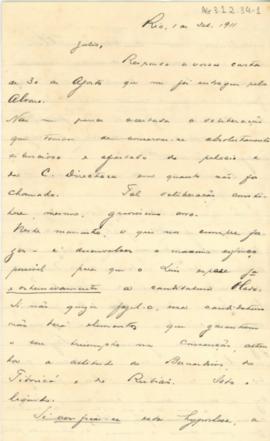 AG 3.1.2.34-1
Rio, 1 de Set. 1911
Julio,
Respondo a vossa carta
de 30 de Agosto que me foi entregue pelo
Alvaro.
Não me parece acertada a deliberação
que tomou de conservar-se absolutamente
silencioso e afastado de palacio e
da C. Directora em quanto não foi
chamado. Tal deliberação constitue
mesmo, gravissimo erro.
Neste momento, o que nos cumpre fazer
é desenvolver o maximo esforço
possivel para que o Luis
e ostensivamente a candidatura
Si não quizer fazel-o, essa candidatura
não terá elementos que garantam
o seu triumpho na convenção
a attitude de Bernardino, de
Tibiriçá e de Rubião. Isto é
liquido.
Si esta hypothese, a